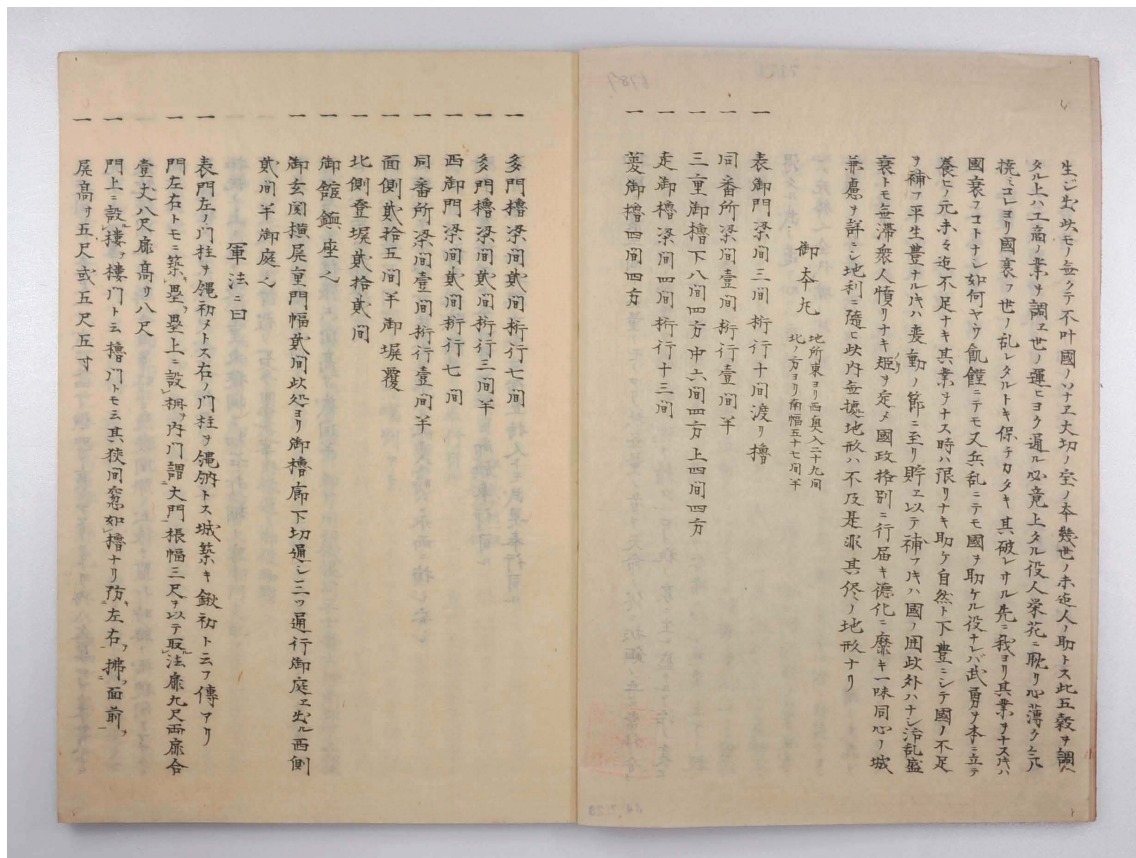 生ジ出此モノ無クテ不叶國ノソナヱ大切ノ宝ノ本幾世ノ末迠人ノ助トス此五穀ヲ調ヘ
タル上ハ工商ノ業ヲ調ヱ世ノ運ヒヨク通ル必竟上タル役人栄花ニ耽リ心薄ク
ヨリ國衰フ世ノ乱レタルトキ保チカタキ其破レサル先ニ我ヨリ其業ヲナス片ハ
國衰フコトナシ如何ヤウ飢饉ニテモ又兵乱ニテモ國ヲ助ケル役ナレバ武勇ヲ本ニ立テ
養ヒノ元手々迠不足ナキ其業ヲナス時ハ限リナキ助ケ自然ト下豊ニシテ國ノ不足
ヲ補フ平生豊ナル片ハ変動ノ節ニ至リ貯ヱ以テ補フ片ハ國ノ囲此外ハナシ治乱盛
衰トモ無滞衆人憤リナキ矩リヲ定メ國政格別ニ行届キ徳化ニ靡キ一味同心ノ城
兼慮ヲ詳ニシ地利ニ随ヒ此内無德地形ハ不及是非其侭ノ地形ナリ
御本丸 地所東ヨリ西奥入二十九間
北ノ方ヨリ南幅五十七間半
一 表御門梁間三間桁行十間渡リ櫓
一 同番所梁間壹間桁行壹間半
一 三重御櫓下八間四方中六間四方上四間四方
一 走御櫓梁間四間桁行十三間
一 菱御櫓四間四方
一 多門櫓梁間貳間桁行七間
一 多門櫓梁間貳間桁行三間半
一 西御門梁間貳間桁行七間
一 同番所梁間壹間桁行壹間半
一 面側貳拾五間半御塀覆
一 北側登塀貳拾貳間
一 御舘鎮座之
一 御玄関横屏重門幅貳間此処ヨリ御櫓廊下切通シ三ツ通行御庭ヱ出ル西側
貳間半御庭之
軍法ニ曰
一 表門左ノ門柱ヲ縄初メトス右ノ門柱ヲ縄納トス城築キ鍬初トニフ傳アリ
一 門左右トモニ築塁塁上ニ設桝内門謂大門根幅三尺ヲ以テ取法扉九尺両扉合
壹丈八尺扉高サ八尺
一 門上ニ設樓樓門トニ櫓門トモニ其狭間窓如櫓ナリ防左右拂面前
一 屏高サ五尺或五尺五寸